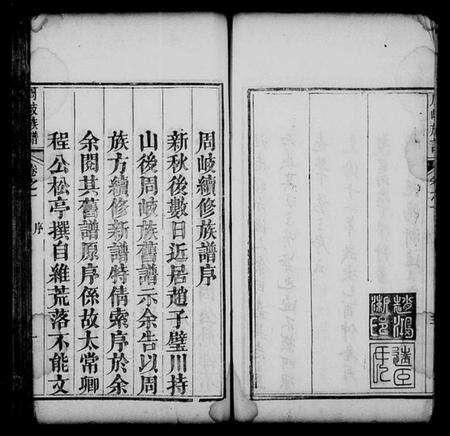 周岐續修族譜序
新秋後數日近居趙子璧川持
山後周岐族舊譜示余告以周
族方續修新譜特倩索序於余
余閱其舊譜原序係故太常卿
程公松亭撰自維荒落不能文
周岐族譜 卷之一 序